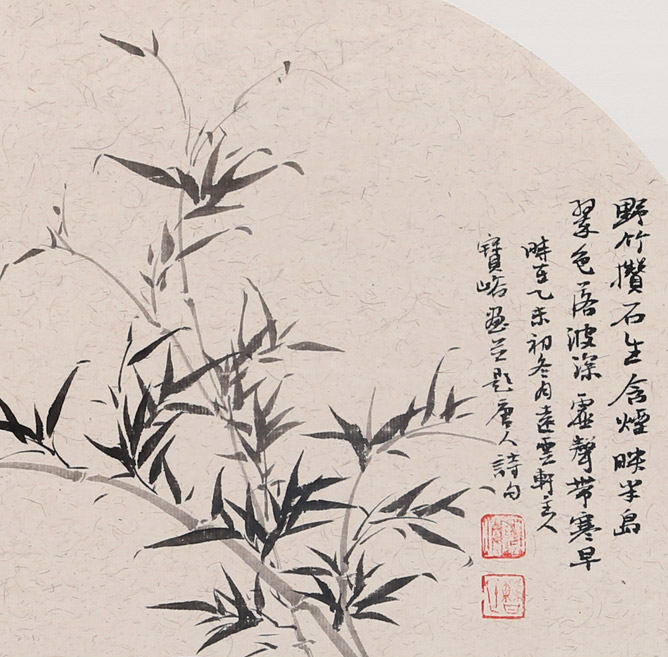 野竹攢石生含煙映半島
翠色落波深虛聲帶寒早
時在乙未初冬遠雲軒主人
寶峪畫並題唐人詩句